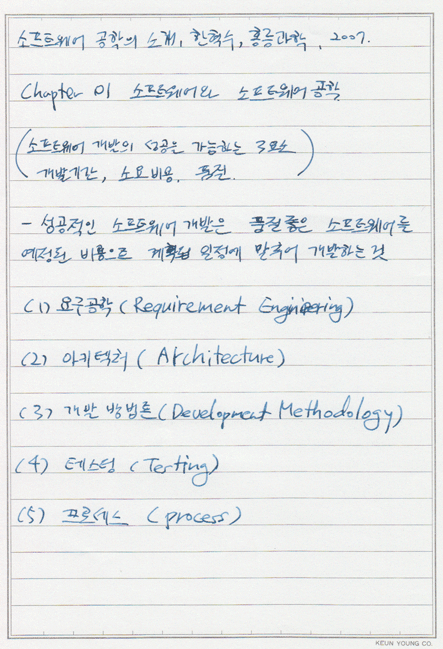 소프트웨어 공학의 소개, 한혁수, 홍릉과학, 2007.
Chapter 01 소프트웨어와 소프트웨어 공학
(소프트웨어 개발의 성공을 가늠하는 3요소
개발기간, 소요비용, 품질.)
- 성공적인 소프트웨어 개발은 품질 좋은 소프트웨어를
예정된 비용으로 계획된 일정에 맞추어 개발하는 것
(1) 요구공학 (Requirement Engineering)
(2) 아키텍처 (Architecture)
(3) 개발 방법론 (Development Methodology)
(4) 테스팅 (Testing)
(5) 프로세스 (process)
KEUN YOUNG CO.